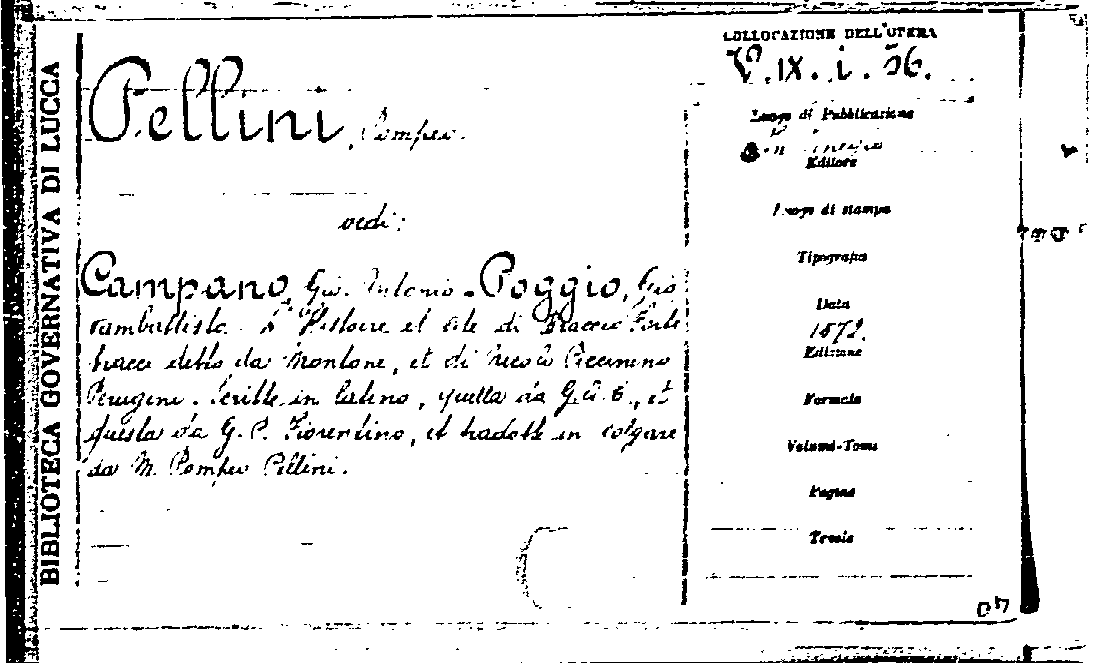 BIBLIOTECA GOVERNATIVA DI LUCCA
Pellini, Pompeo.
vedi:
Campano, Gio. Antonio - Poggio, Gio
vambattista. L'Historie et vite di Braccio Forte
bracci detto da Montone, et di Nicolò Piccinino
Perugini. Scritte in latino, quella da G. A. C., et
questa da G. P. Fiorentino, et tradotte in volgare
da M. Pompeo Pellini.
COLLOCAZIONE DELL'OPERA
V. IX. i. 56.
Luogo di Pubblicazione
Editore
Luogo di stampa
Tipografia
Data
1572.
Edizione
Formato
Volumi-Tomi
Pagine